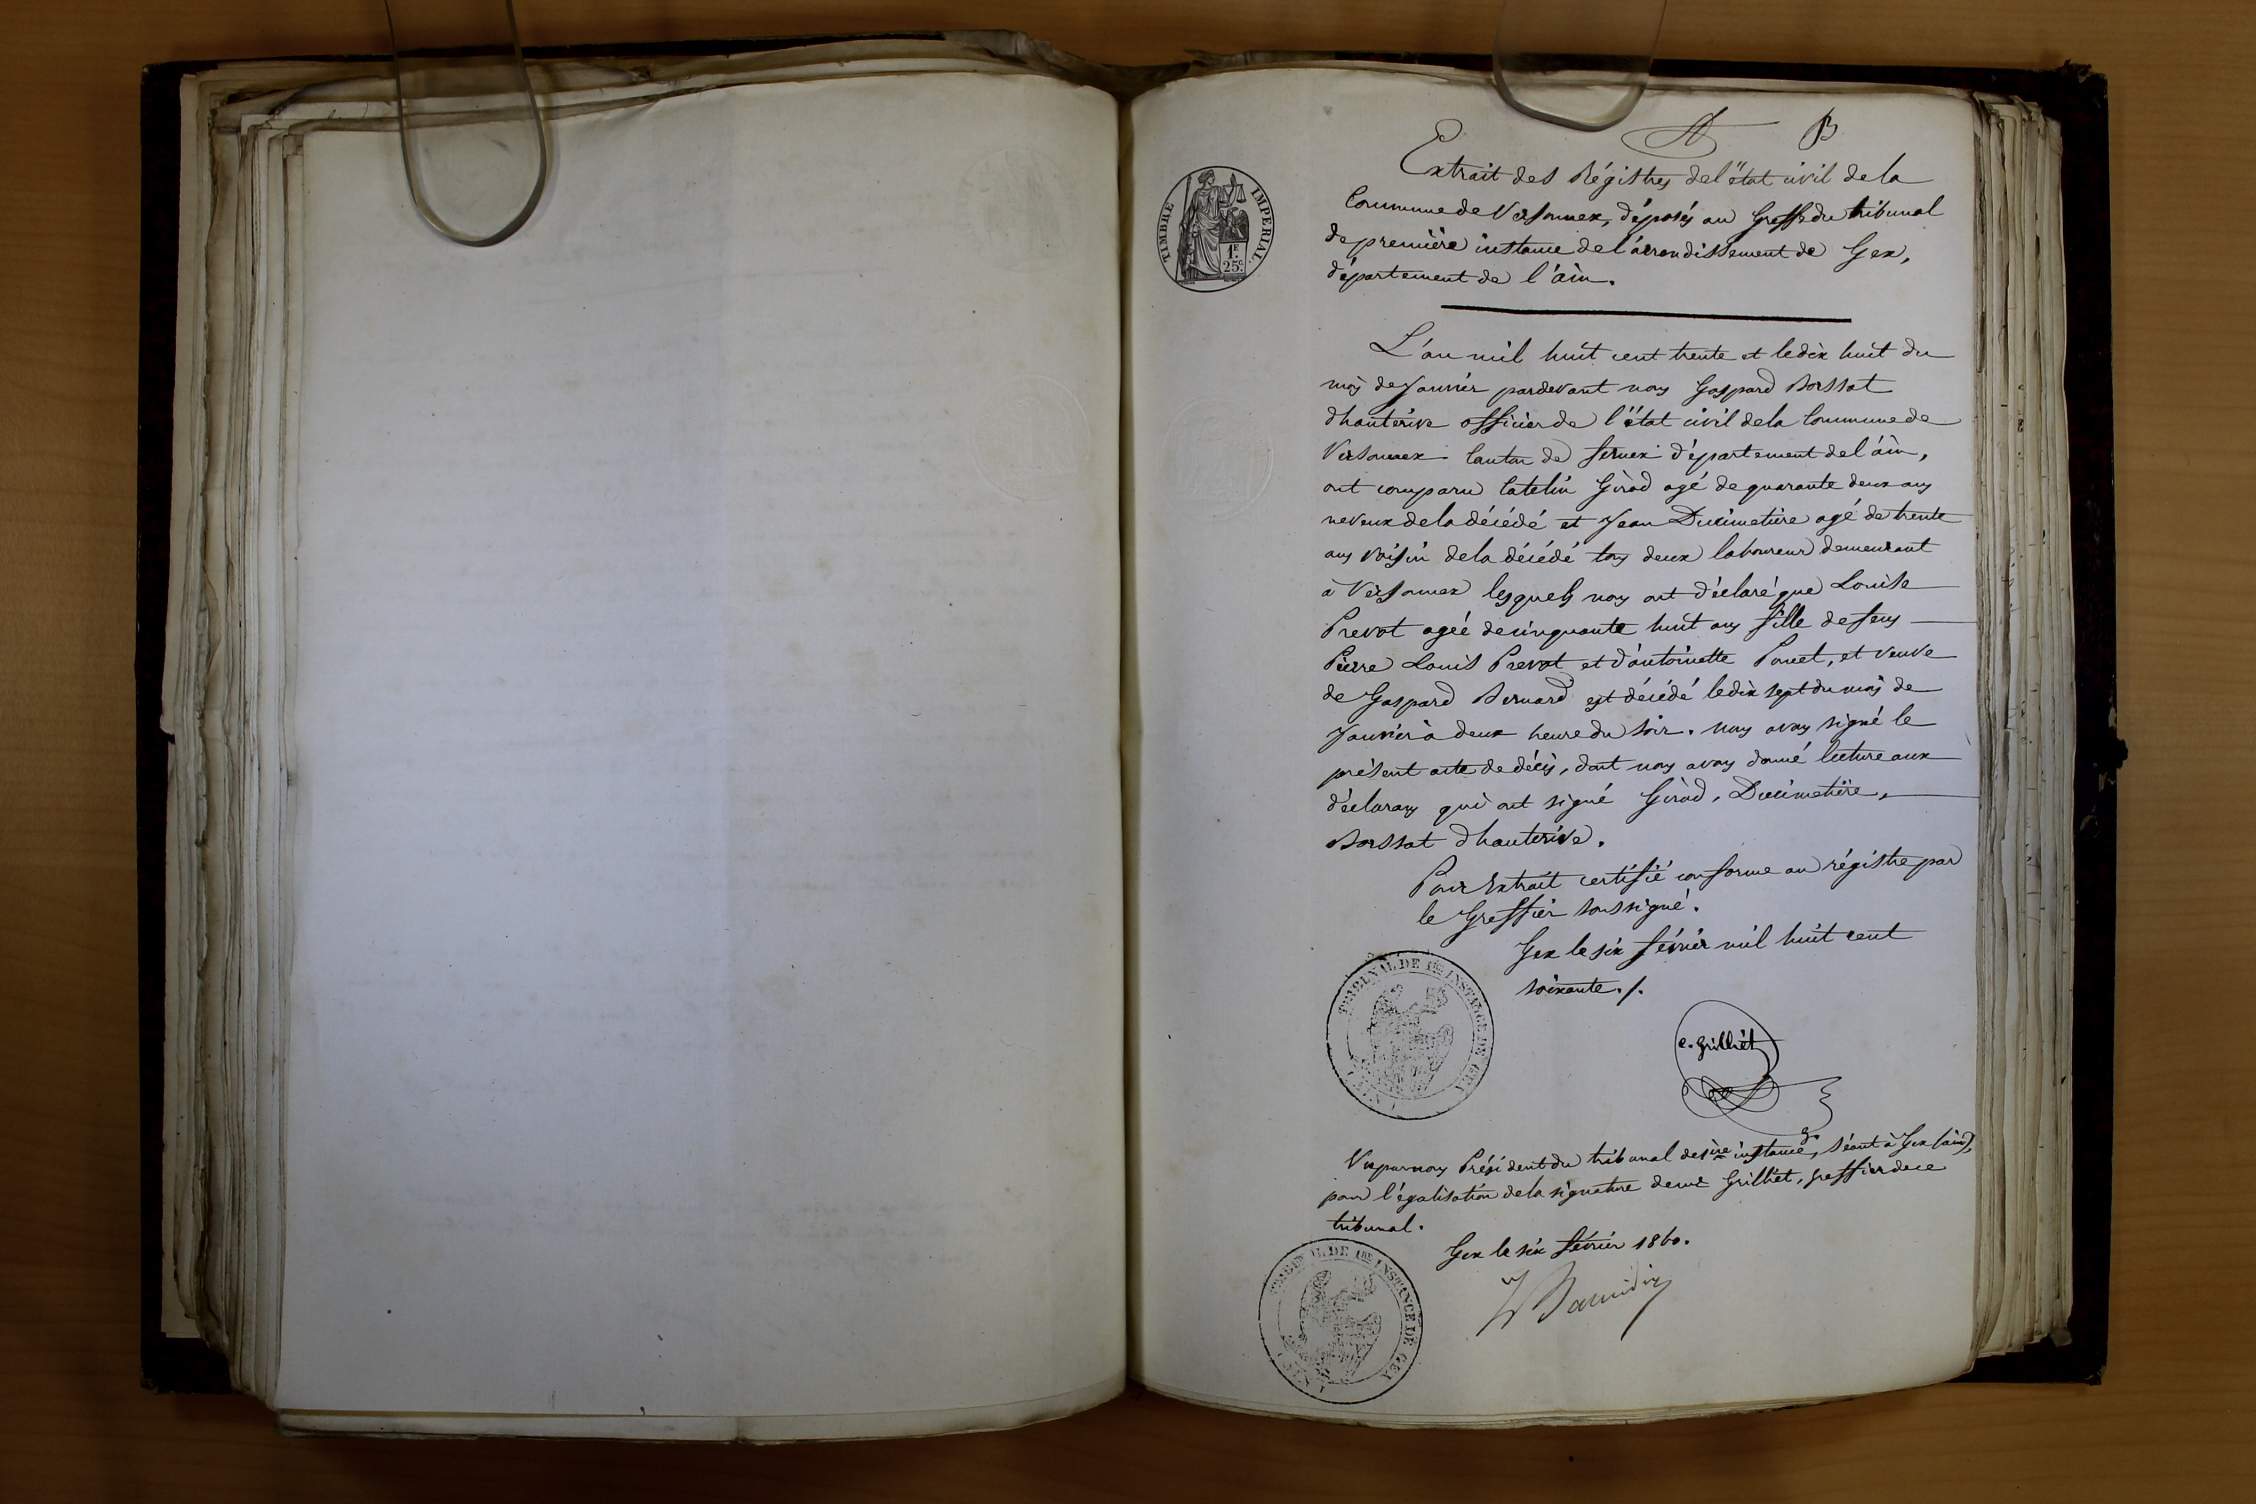 B
Extrait des Régistres de l'état civil de la
Commune de Versonnex, déposés au Greffe du tribunal
de première instance de l'arrondissement de Gex,
département de l'ain.
TIMBRE IMPERIAL
1F
25c
L'an mil huit cent trente et le dix huit du
mois de Janvier pardevant nous Gaspard Borssat
dhauterive officier de l'état civil de la Commune de
Versonnex Canton de fernex département de l'ain,
ont comparu Catelin Girod agé de quarante deux ans
neveux de la décédé et Jean Ducimetière agé de trente
ans voisin de la décédé tous deux laboureur demeurant
à Versonnex lesquels nous ont déclaré que Louise
Prevot ageé de cinquante huit ans fille de feus
Pierre Louis Prevot et d'antoinette Ponet, et veuve
de Gaspard Bernard est décédé le dix sept du mois de
Janvier à deux heure du soir. nous avons signé le
présent acte de décès, dont nous avons donné lecture aux
déclarans qui ont signé Girod, Ducimetière,
Borssat dhauterive.
Pour Extrait certifié conforme au régistre par
le Greffier soussigné.
Gex le six février mil huit cent
soixante ./.
TRIBUNAL DE 1ère INSTANCE DE GEX
(AIN)
C. Grilliet
Vu par nous Président du tribunal de 1ère instance, séant à Gex (ain),
pour légalisation de la signature de me Grilliet, greffier de ce
tribunal.
Gex le six février 1860.
TRIBUNAL DE 1ère INSTANCE DE GEX
(AIN)